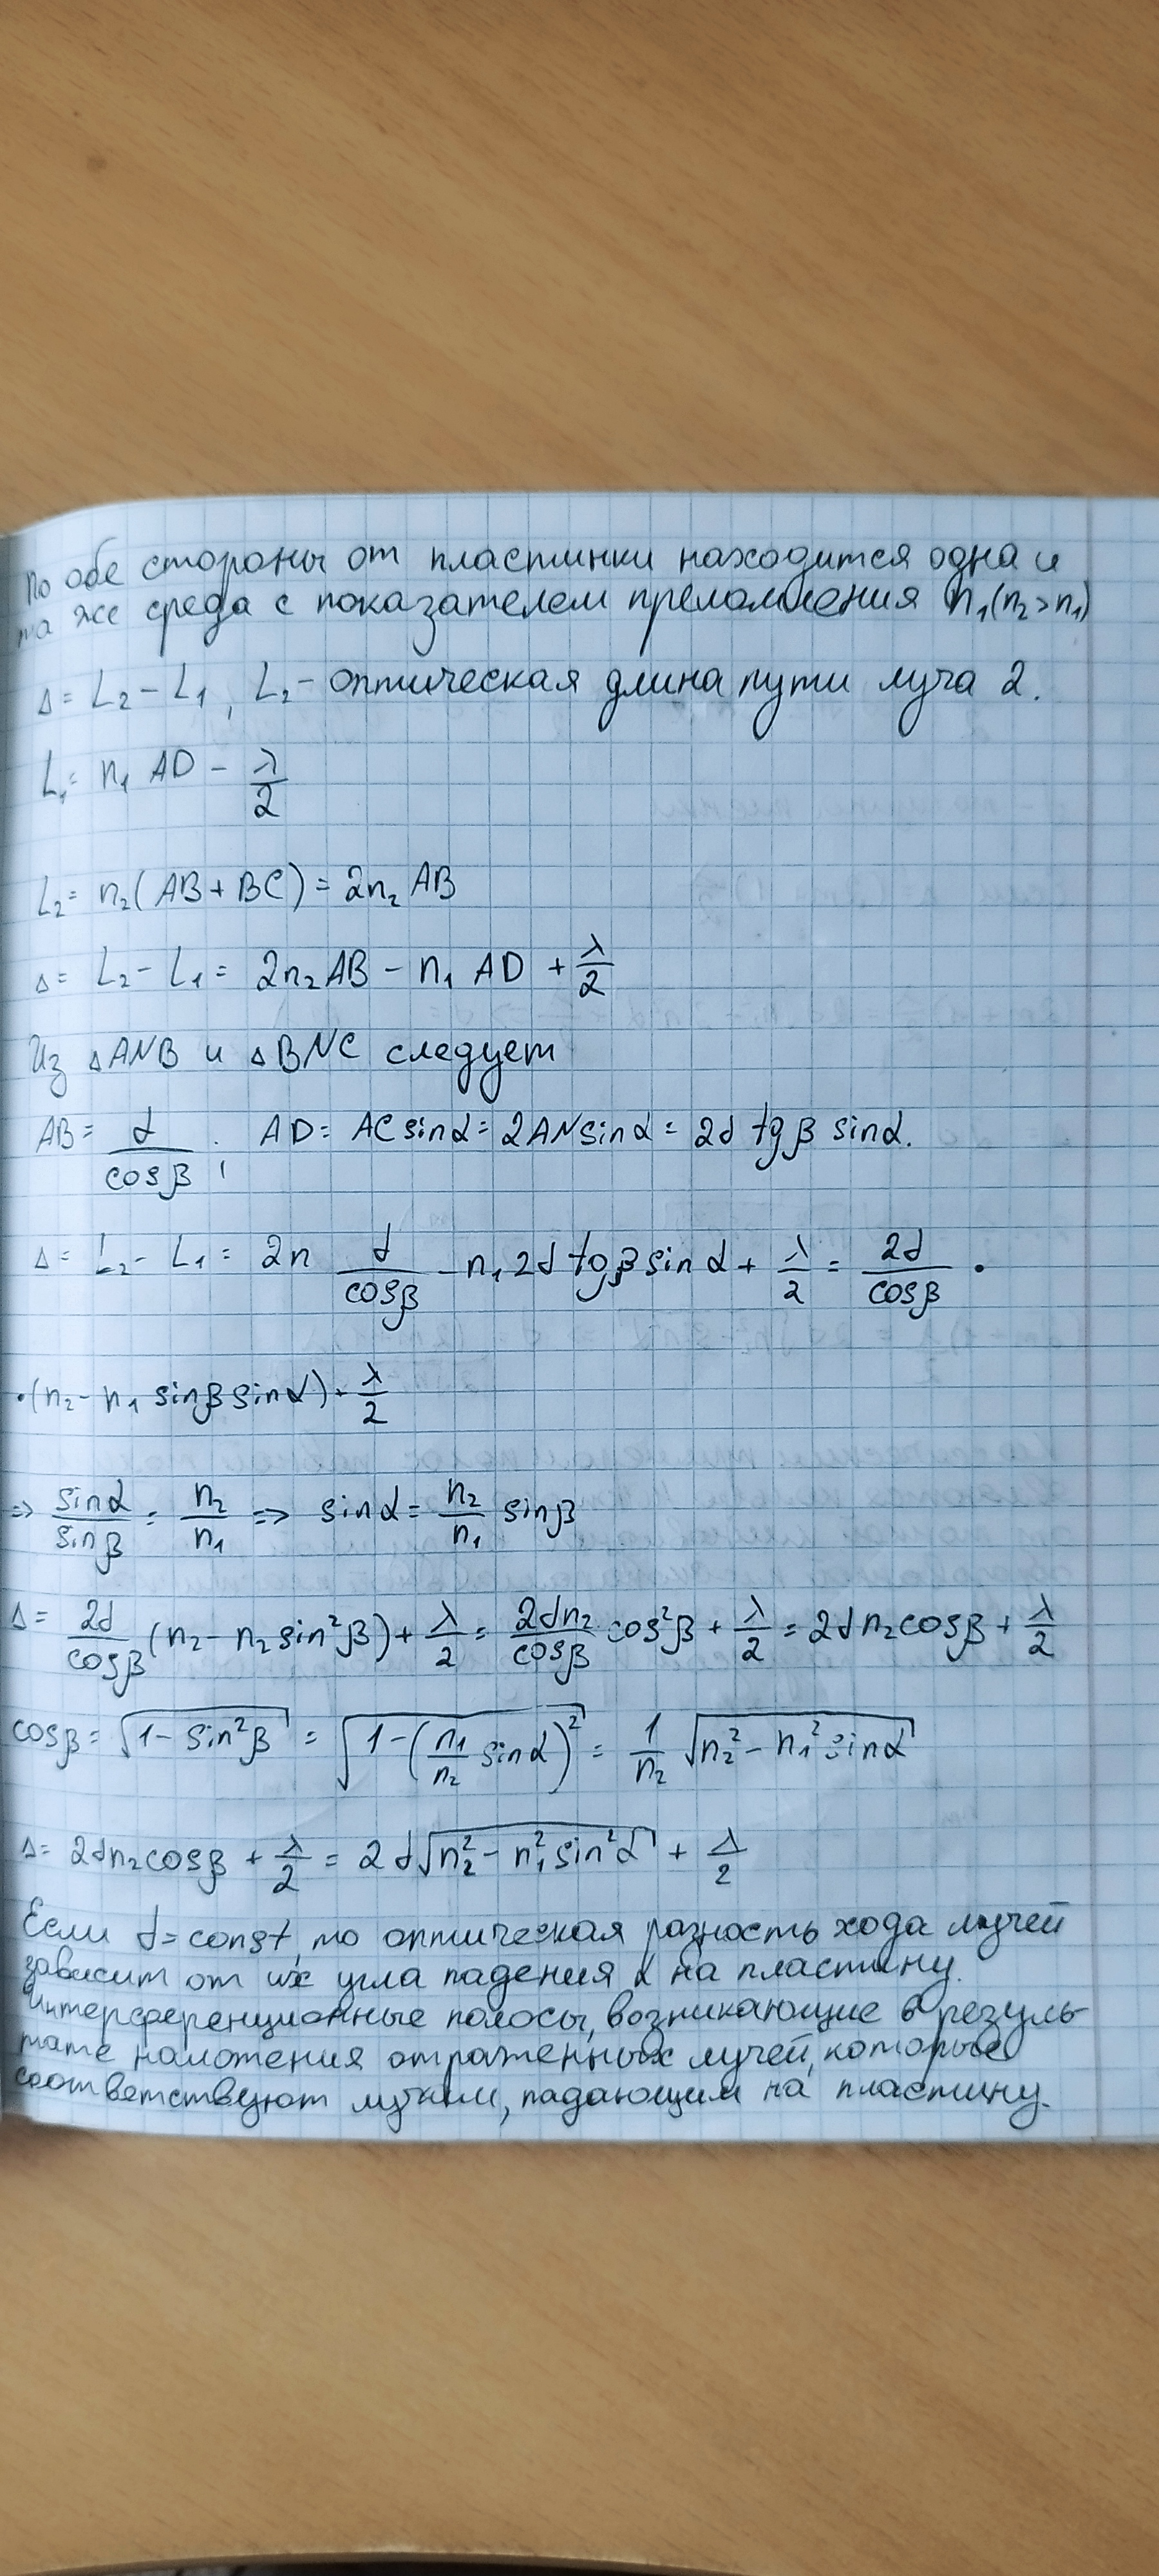 По обе стороны от пластинки находится одна и
та же среда с показателем преломления n₁(n₂>n₁)
Δ = L₂ − L₁, L₂ − оптическая длина пути луча 2.
L₁ = n₁ AD − λ/2
L₂ = n₂(AB + BC) = 2n₂ AB
Δ = L₂ − L₁ = 2n₂AB − n₁ AD + λ/2
Из ΔANB и ΔBNC следует
AB = d/cosβ; AD = AC sinα = 2AN sinα = 2d tgβ sinα.
Δ = L₂ − L₁ = 2n d/cosβ − n₁ 2d tgβ sinα + λ/2 = 2d/cosβ •
•(n₂ − n₁ sinβ sinα) + λ/2
=> sinα/sinβ = n₂/n₁ => sinα = n₂/n₁ sinβ
Δ = 2d/cosβ (n₂ − n₂ sin²β) + λ/2 = 2dn₂/cosβ cos²β + λ/2 = 2dn₂cosβ + λ/2
cosβ = √(1 − sin²β) = √(1 − (n₁/n₂ sinα)²) = 1/n₂ √(n₂² − n₁² sinα)
Δ = 2dn₂cosβ + λ/2 = 2d√(n₂² − n₁² sin²α) + λ/2
Если d = const, то оптическая разность хода лучей
зависит от их угла падения α на пластину.
Интерференционные полосы, возникающие в резуль
тате наложения отраженных лучей, которые
соответствуют лучам, падающим на пластину.